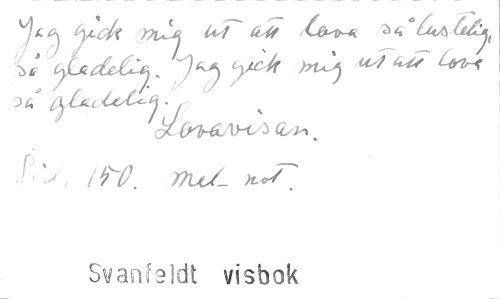 Jag gick mig ut att lova så lustelig,
så gladelig. Jag gick mig ut att lova
så gladelig.
Lovavisan.
Sid. 150. mel-not.
Svanfeldt visbok